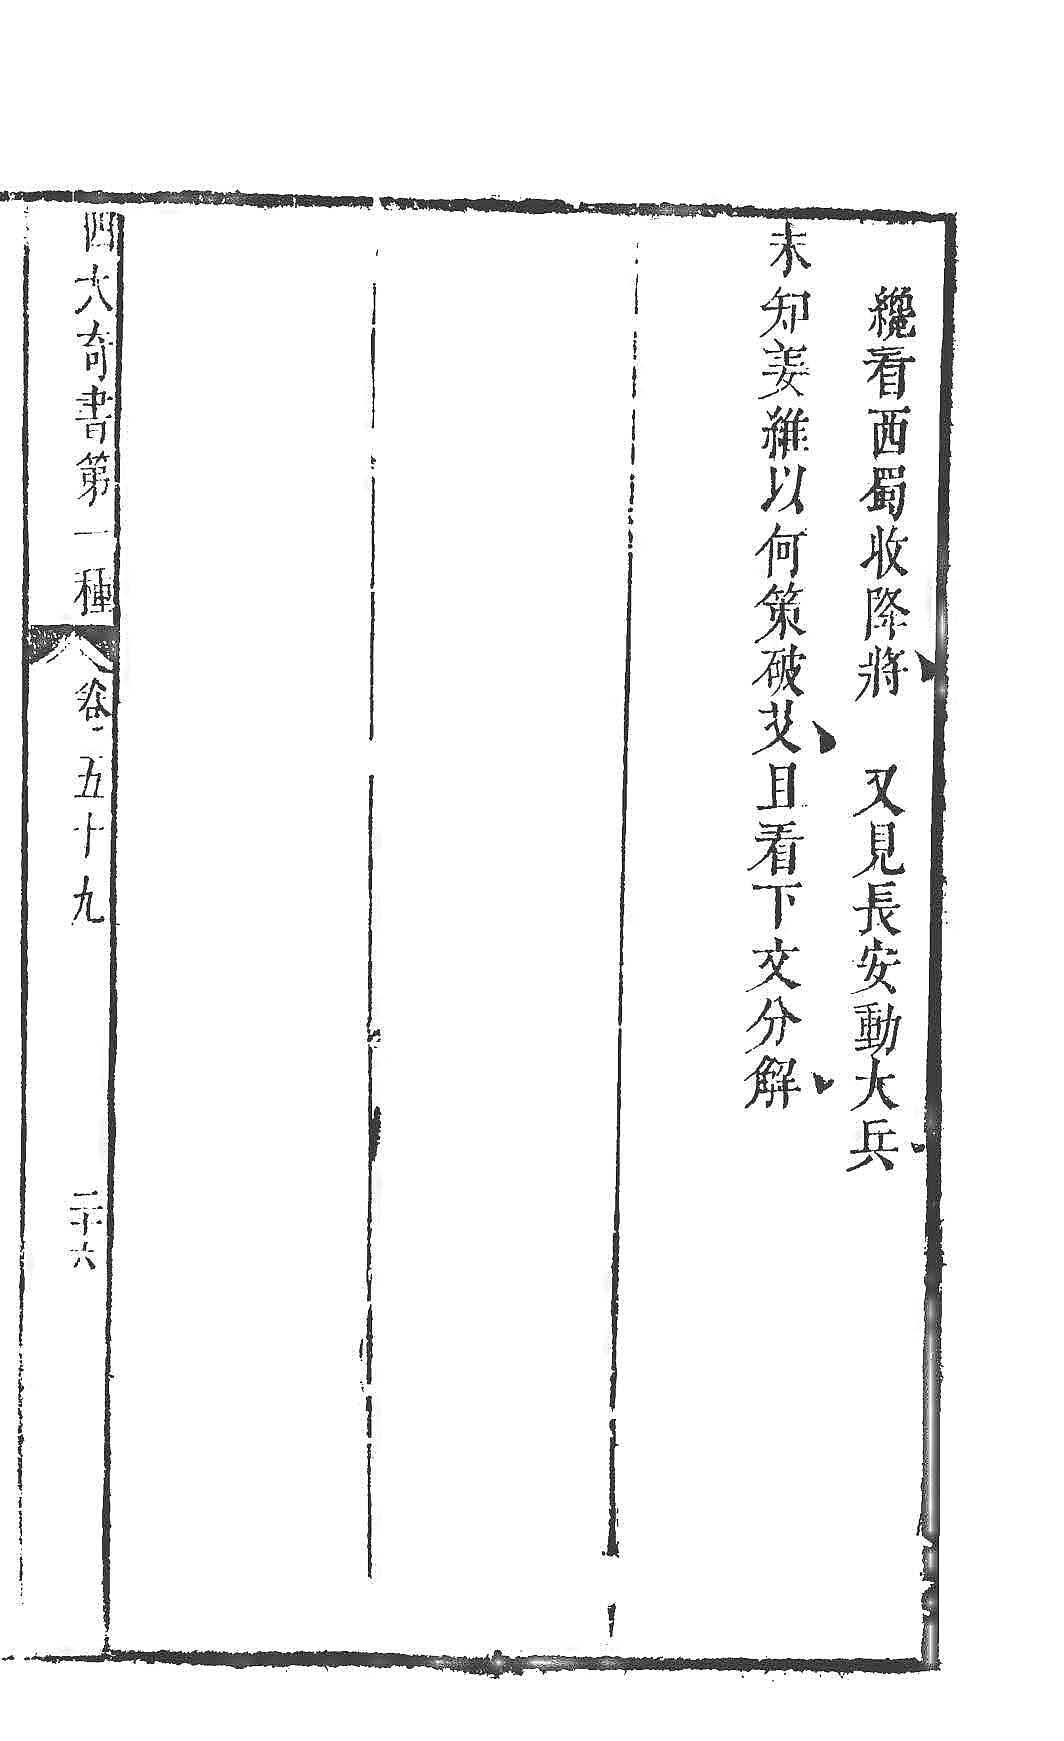 纔看西蜀收降將　又見長安動大兵
未知姜維以何策破艾且看下文分解
四大奇書第一種　卷五十九　二十六